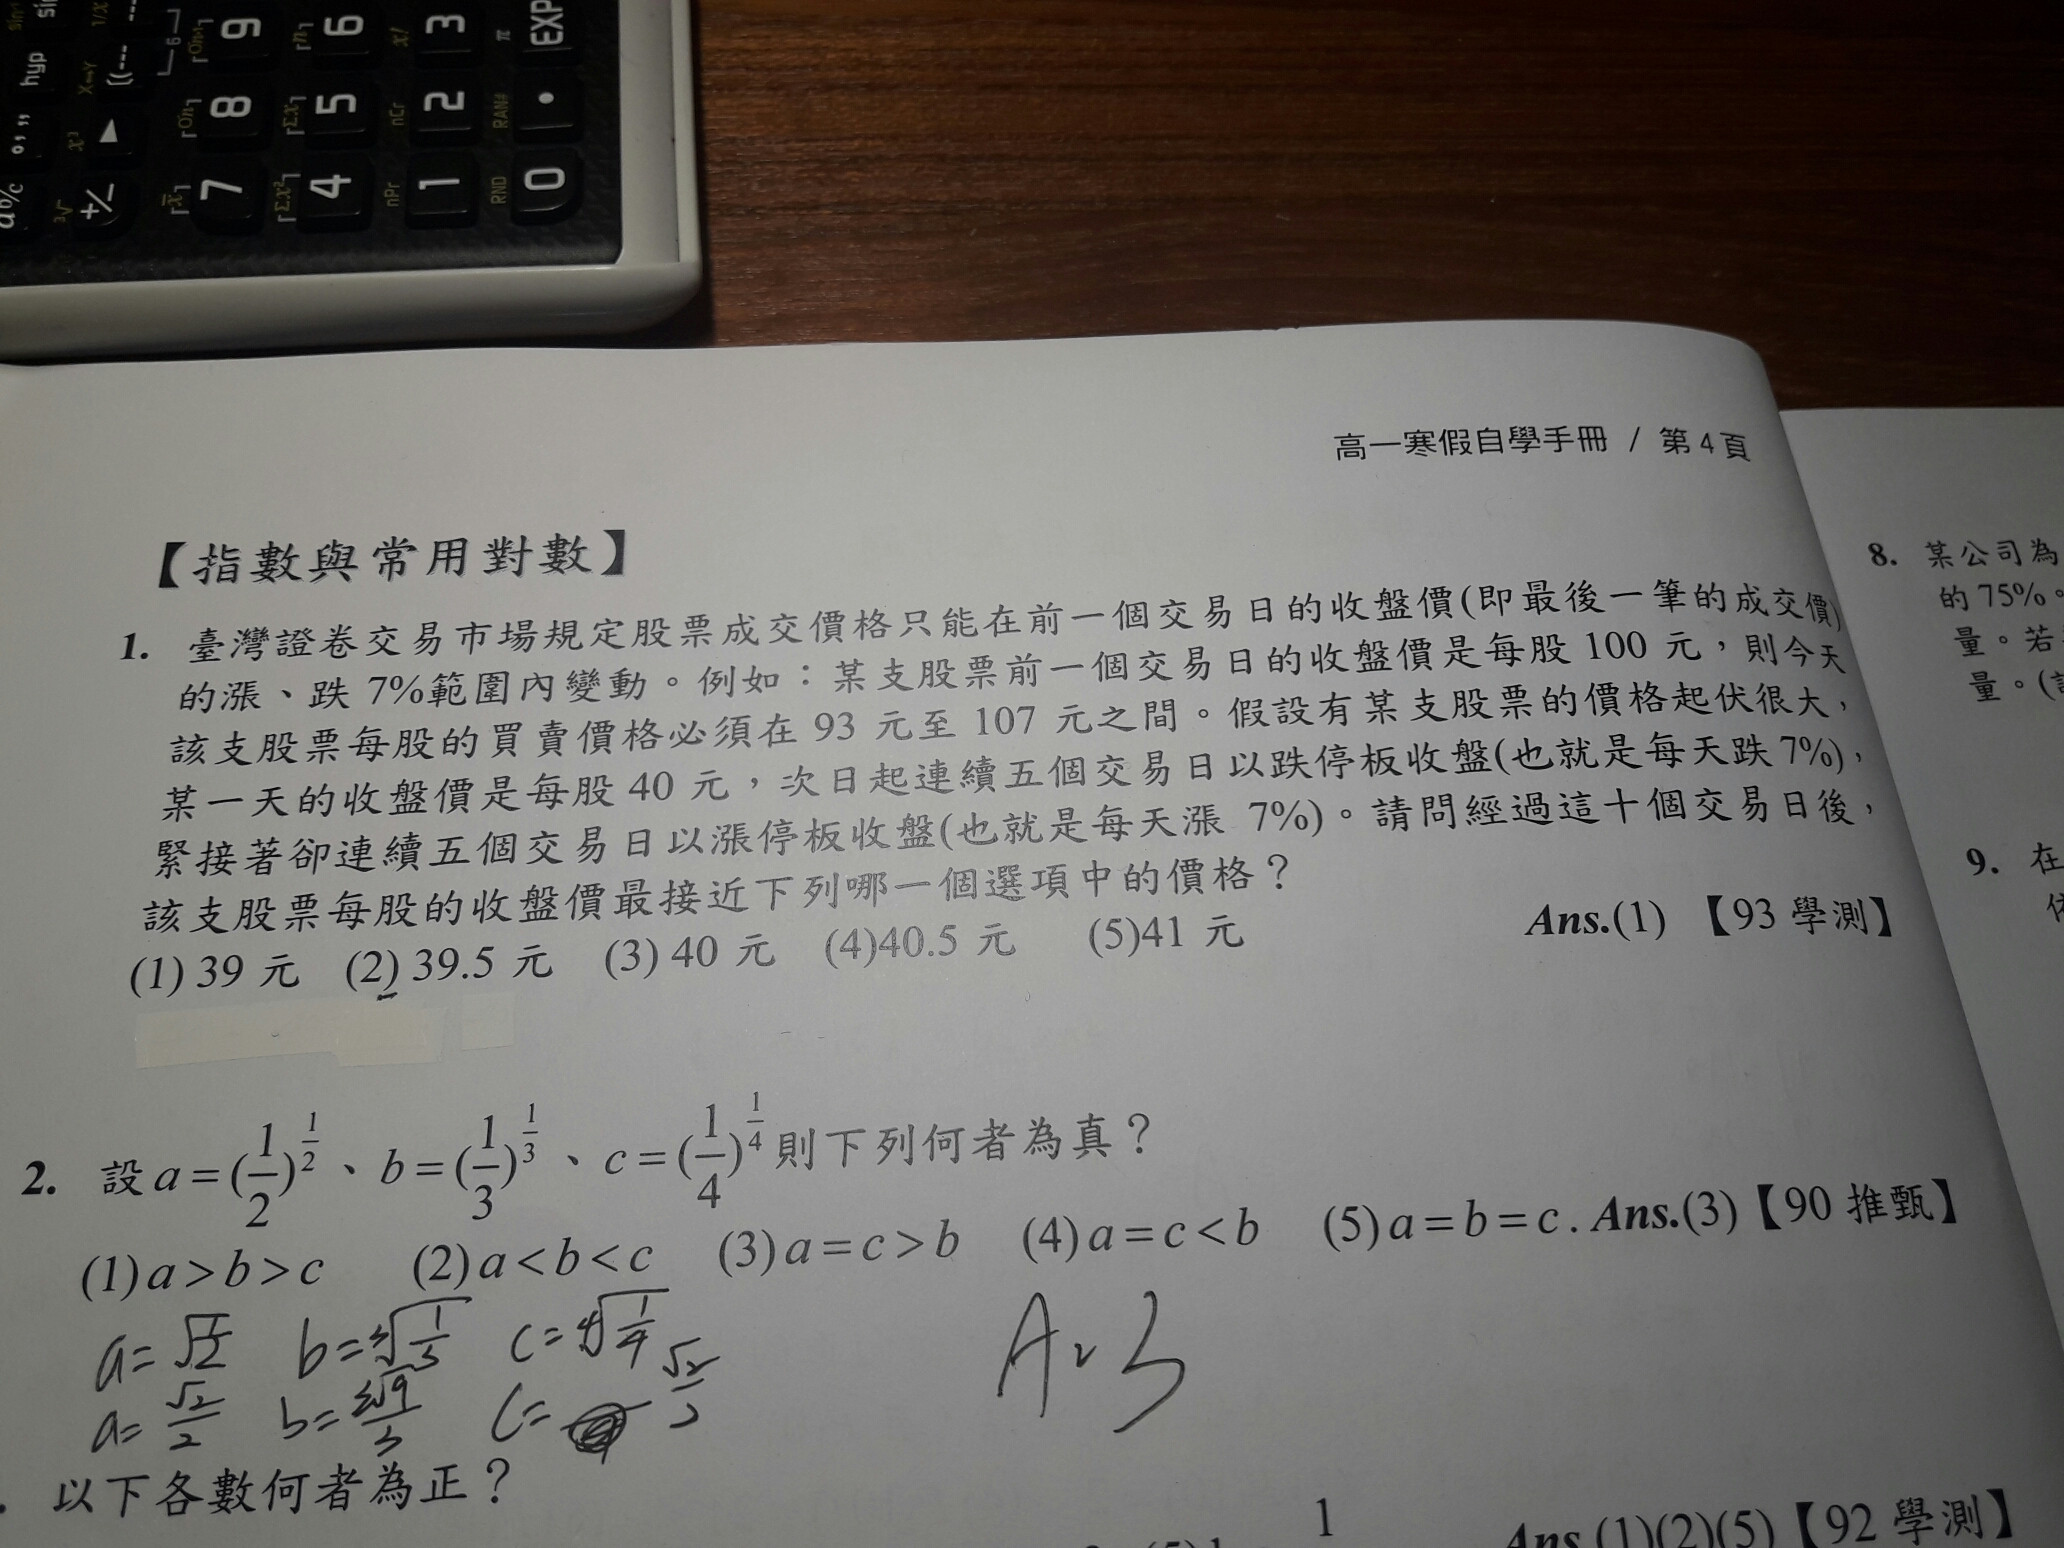 hyp
9
6
3
EXP
8
5
2
7
4
1
0
+/-
nCr
RAN#
nPr
RND
高一寒假自學手冊 / 第4頁
【指數與常用對數】
1. 臺灣證卷交易市場規定股票成交價格只能在前一個交易日的收盤價(即最後一筆的成交價)
的漲、跌 7%範圍內變動。例如：某支股票前一個交易日的收盤價是每股 100 元，則今天
該支股票每股的買賣價格必須在 93 元至 107 元之間。假設有某支股票的價格起伏很大，
某一天的收盤價是每股 40 元，次日起連續五個交易日以跌停板收盤(也就是每天跌 7%)，
緊接著卻連續五個交易日以漲停板收盤(也就是每天漲 7%)。請問經過這十個交易日後，
該支股票每股的收盤價最接近下列哪一個選項中的價格？
(1) 39 元 (2) 39.5 元 (3) 40 元 (4)40.5 元 (5)41 元 Ans.(1) 【93 學測】
2. 設 a = (1/2)^(1/2)、b = (1/3)^(1/3)、c = (1/4)^(1/4) 則下列何者為真？
(1) a > b > c (2) a < b < c (3) a = c > b (4) a = c < b (5) a = b = c . Ans.(3)【90 推甄】
a = √(1/2) b = ³√(1/3) c = ⁴√(1/4)
a = √2/2 b = ³√9/3 c = √2/2
以下各數何者為正？
1
Ans.(1)(2)(5)【92 學測】
8. 某公司為
的 75%。
量。若
量。(
9. 在